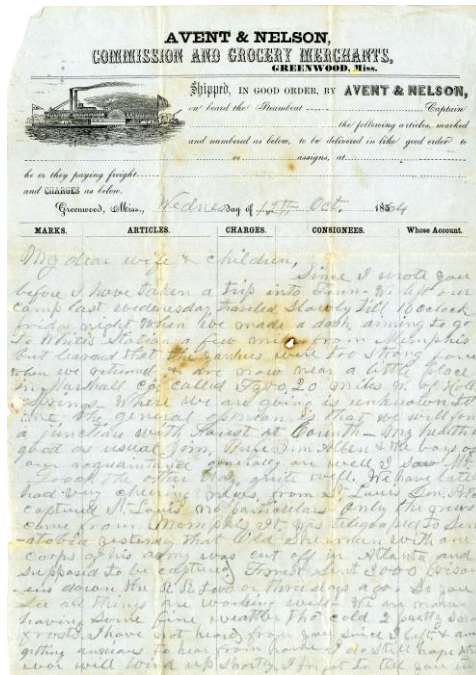 AVENT & NELSON,
COMMISSION AND GROCERY MERCHANTS,
GREENWOOD, Miss.
Shipped, IN GOOD ORDER, BY AVENT & NELSON,
on board the Steamboat Captain
the following articles, marked
and numbered as below, to be delivered in like good order to
or assigns, at
he or they paying freight
and CHARGES as below.
Greenwood, Miss., Wednes Day of 12th Oct. 1864
MARKS. ARTICLES. CHARGES. CONSIGNEES. Whose Account.
My dear wife & children,
Since I wrote you
before I have taken a trip into Tenn. We left our
camp last wednesday traveled slowly till 10 oclock
friday night when we made a dash, aiming to go
to Whites Station a few miles from Memphis
but learned that the yankees were too strong
when we returned & are now near a little place
in Marshall Co. called 20 miles of
Springs. Where we are going is unknown to
the general opinion is that we will form
a junction with Forest at Corinth. My health
good as usual Tom, Allen & the boys of
our generally are well I saw Mr.
the other day, quite well. We have late
had very cheering news, from St. Louis Gen.
captured St. Louis no particulars only the news
came from Memphis It was telegraphed to Sen
yesterday that Old Sherman with one
corps of his army was cut off in Atlanta and
supposed to be captured Forest sent 3000 prison
ers down the R R two or three days ago So you
see all things are working well. We are
having some fine weather tho cold 2
frosts I have not heard from you since I left & am
getting anxious to hear from home I still hope the
war will wind up shortly I forgot to tell you in